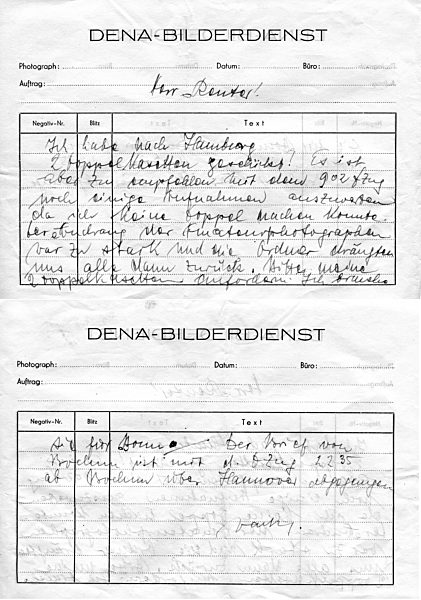 DENA-BILDERDIENST
Photograph: Datum: Büro:
Auftrag: Herr Reuter!
Negativ-Nr. Blitz Text
Ich habe nach Hamburg
2 Doppelkasetten geschickt! Es ist
aber zu empfehlen mit dem 902 fzug
noch einige Aufnahmen auszuwerten
da ich keine Doppel machen konnte.
der Amateurphotographen
war zu stark und die Ordner drängten
uns alle Mann zurück. Bitte meine
2 Doppelkasetten anfordern. Ich
DENA-BILDERDIENST
Photograph: Datum: Büro:
Auftrag:
Negativ-Nr. Blitz Text
sie für Der Brief von
Bochum ist mit d. D-Zug 22 35
ab Bochum über Hannover abgegangen